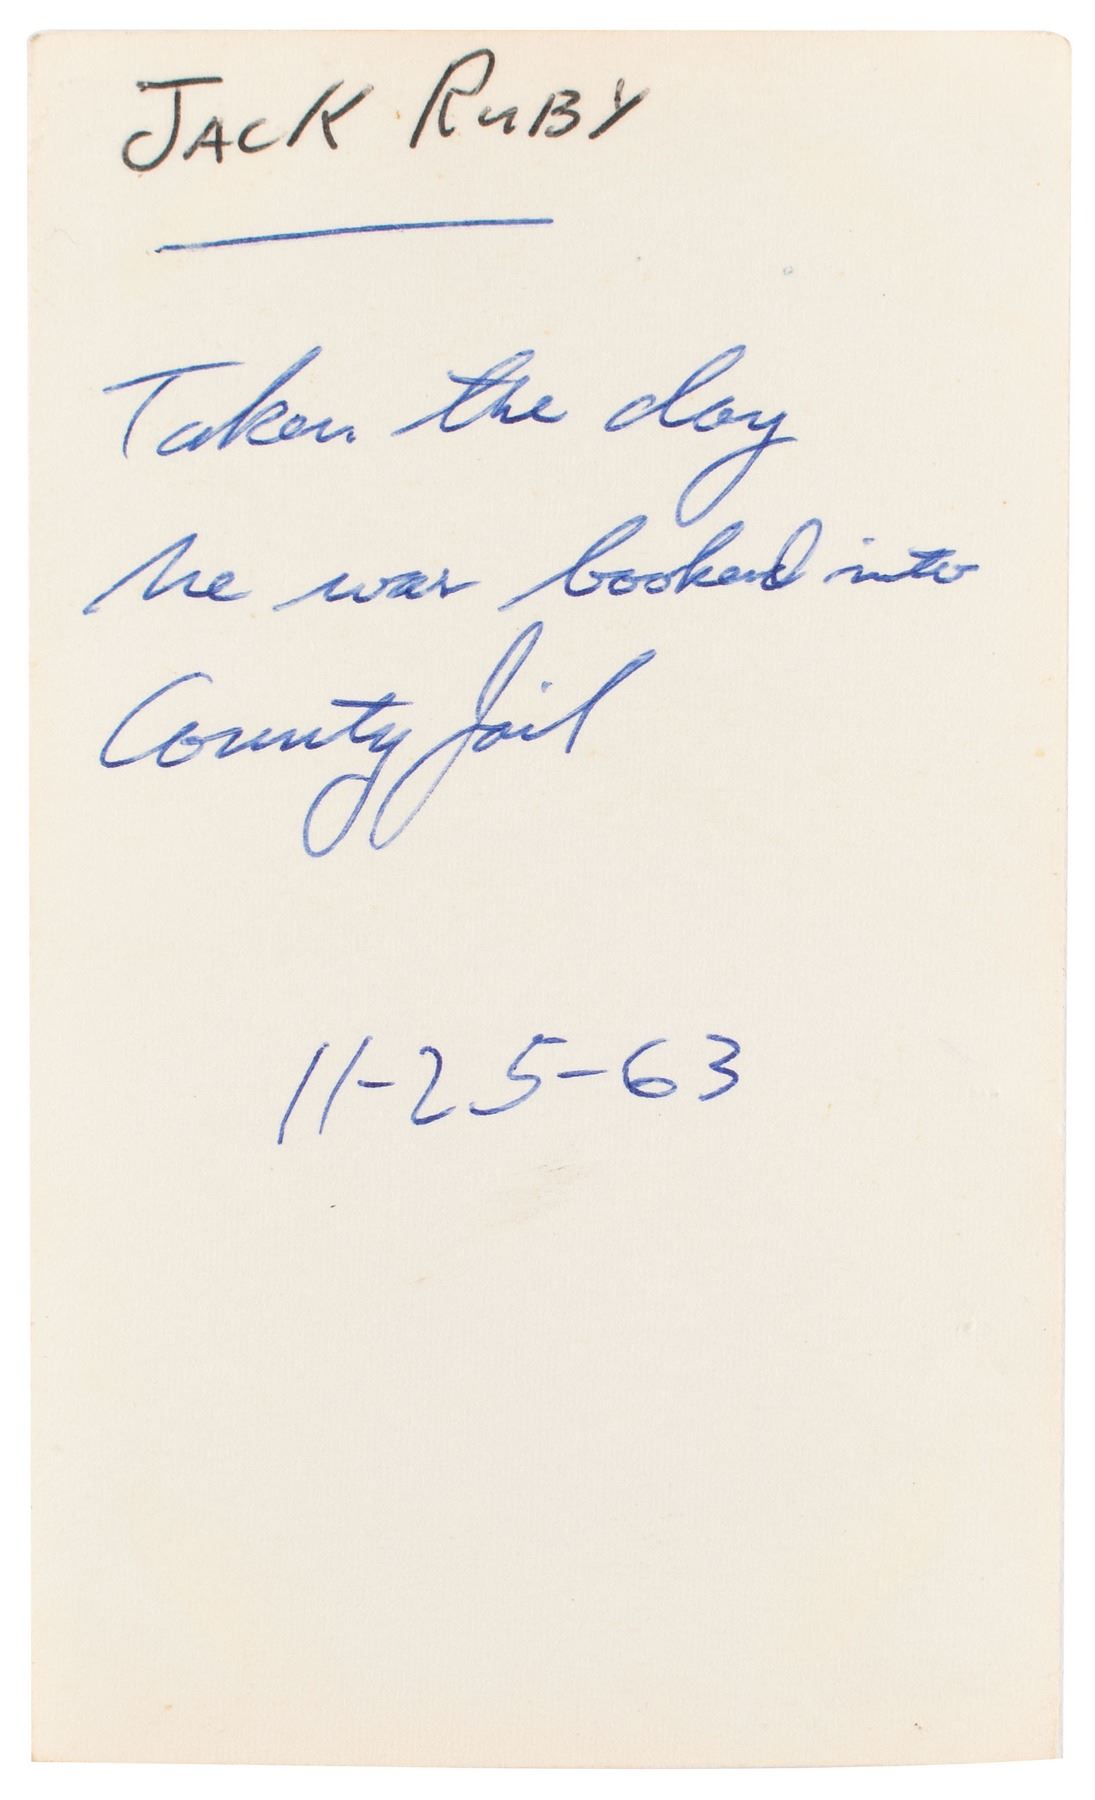 JACK RUBY
Taken the day
he was booked into
County Jail
11-25-63